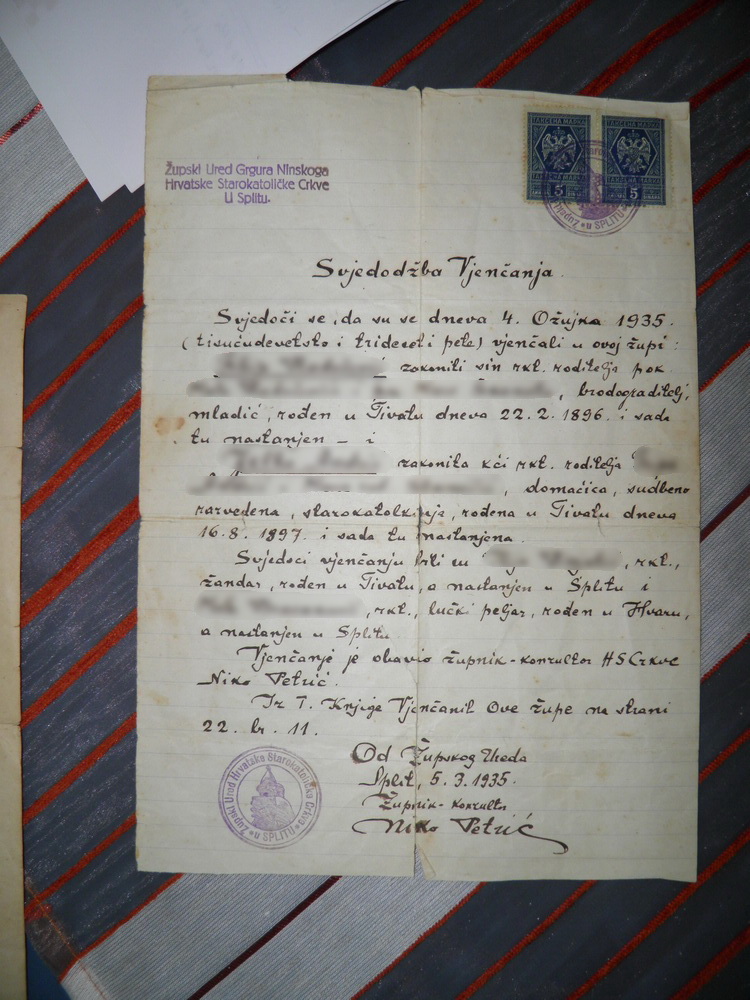 Župski Ured Grgura Ninskoga
Hrvatske Starokatoličke Crkve
U Splitu.
ТАКСЕНА МАРКА ТАКСЕНА МАРКА
5 5
u SPLITU
Svjedodžba Vjenčanja
Svjedoči se, da su se dneva 4. Ožujka 1935.
(tisućudevetsto i trideseti pete) vjenčali u ovoj župi:
zakoniti sin rkt. roditelja pok.
, brodograditelj,
mladić, rođen u Tivatu dneva 22.2.1896. i sada
tu nastanjen – i
zakonita kći rkt. roditelja
, domaćica, sudbeno
razvedena, starokatolkinja, rođena u Tivatu dneva
16.8.1897. i sada tu nastanjena.
Svjedoci vjenčanju bili su , rkt.,
žandar, rođen u Tivatu, a nastanjen u Splitu i
, rkt., lučki peljar, rođen u Hvaru,
a nastanjen u Splitu.
Vjenčanje je obavio župnik-konzultor HSCrkve
Niko Petrić.
Iz I. Knjige Vjenčanih Ove župe na strani
22. br. 11.
Od Župskog Ureda
Split, 5.3.1935.
Župnik-konzultor
Niko Petrić
Župski Ured Hrvatske Starokatoličke Crkve
u SPLITU